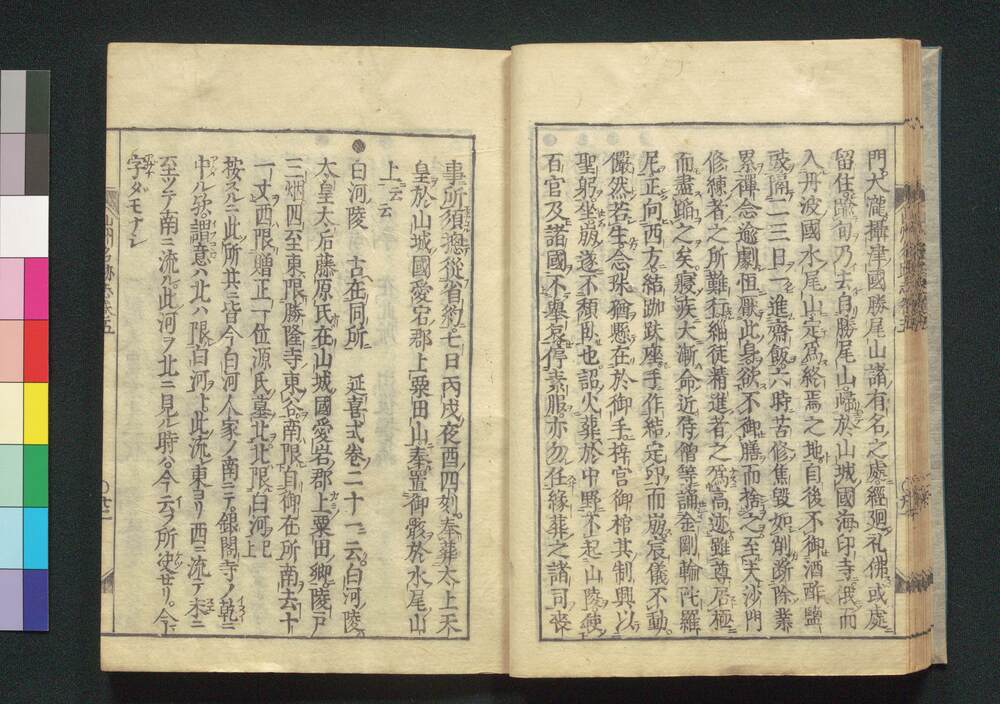 門大瀧攝津國勝尾山諸有名之處經廻礼佛或處
留住踰旬乃去自勝尾山歸於山城國海印寺俄而
入丹波國水尾山定爲終焉之地自後不御酒酢鹽
豉隔二三日一進齋飯六時苦修焦毀如削斷除業
累禪念逾劇恒厭此身欲不御膳而捨之至夫沙門
修練者之所難行緇徒精進者之爲高迹雖尊居極
而盡蹈之矣寢疾大漸命近侍僧等誦金剛輪陀羅
尼正向西方結跏趺座手作結定印而崩宸儀不動
儼然若生念珠猶懸在於御手梓官御棺其制輿以
聖躬坐崩遂不頽臥也詔火葬於中野不起山陵使
百官及諸國不擧哀停素服亦勿任縁葬之諸司喪
事所須摠從省約七日丙戌夜酉四刻奉葬太上天
皇於山城國愛宕郡上粟田山奉置御骸於水尾山
上云云
白河陵 古在同所 延喜式卷二十一ニ云白河陵
太皇太后藤原氏在山城國愛宕郡上粟田郷陵戸
三烟四至東限勝隆寺東谷南限自御在所南去十
一丈西限贈正一位源氏墓北北限白河已上
按スルニ此所其ニ皆今白河人家ノ南ニテ銀閣寺ノ乾ニ
中ル歟謂意ハ北ハ限白河ト此流東ヨリ西ニ流テ末ニ
至ツテ南ニ流ル此河ヲ北ニ見ル時ハ今云フ所使セリ今ハ
字ダモナシ